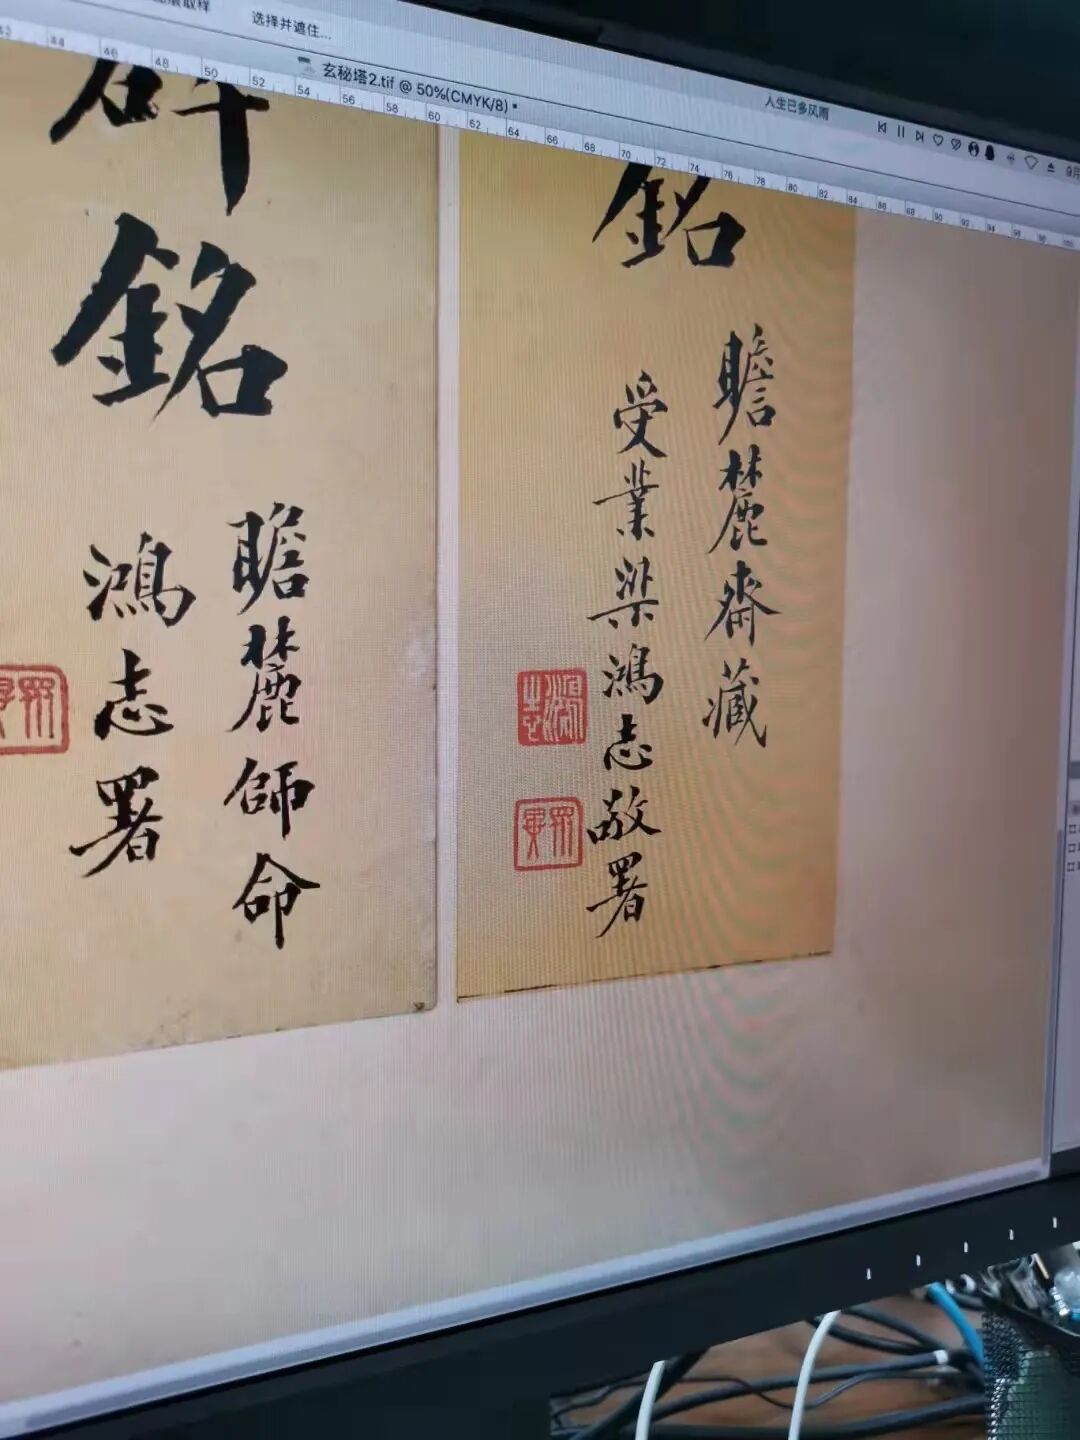 选择并遮住...
玄秘塔2.tif @ 50%(CMYK/8) *
人生已多风雨
9月
44 46 48 50 52 54 56 58 60 62 64 66 68 70 72 74 76 78 80 82 84 86 88 90 92 94 96 98 100
銘
瞻麓齋藏
受業梁鴻志敬署
鴻志
碑銘
瞻麓師命
鴻志署